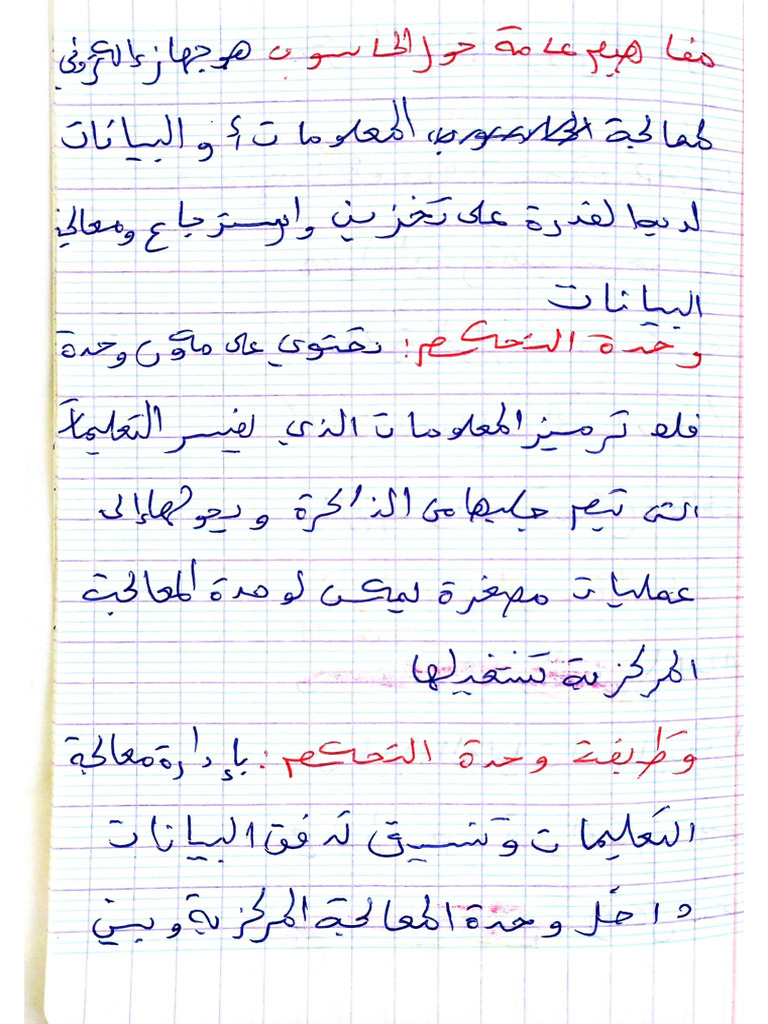 مفاهيم عامة حول الحاسوب هو جهاز إلكتروني
لمعالجة المعلومات أو البيانات
لديها لقدرة على تخزين واسترجاع ومعالج
البيانات
وحدة التحكم: تحتوي على مكون وحدة
فك ترميز المعلومات الذي يفسر التعليمات
التي تيم جلبها من الذاكرة ويحولها إلى
عمليات مصغرة ليمكن لوحدة المعالجة
المركزية تشغيلها
وظيفة وحدة التحكم: بإدارة معالجة
التعليمات وتنسيق تدفق البيانات
داخل وحدة المعالجة المركزية وبين